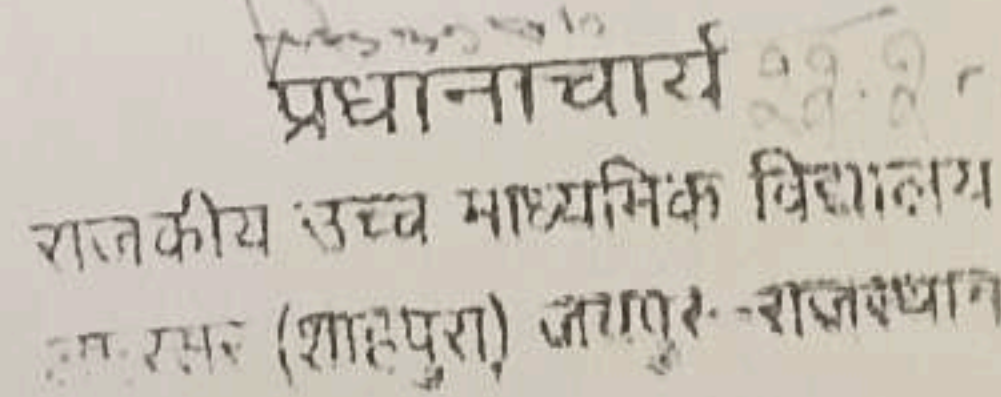 प्रधानाचार्य
राजकीय उच्च माध्यमिक विद्यालय
(शाहपुरा) जयपुर-राजस्थान